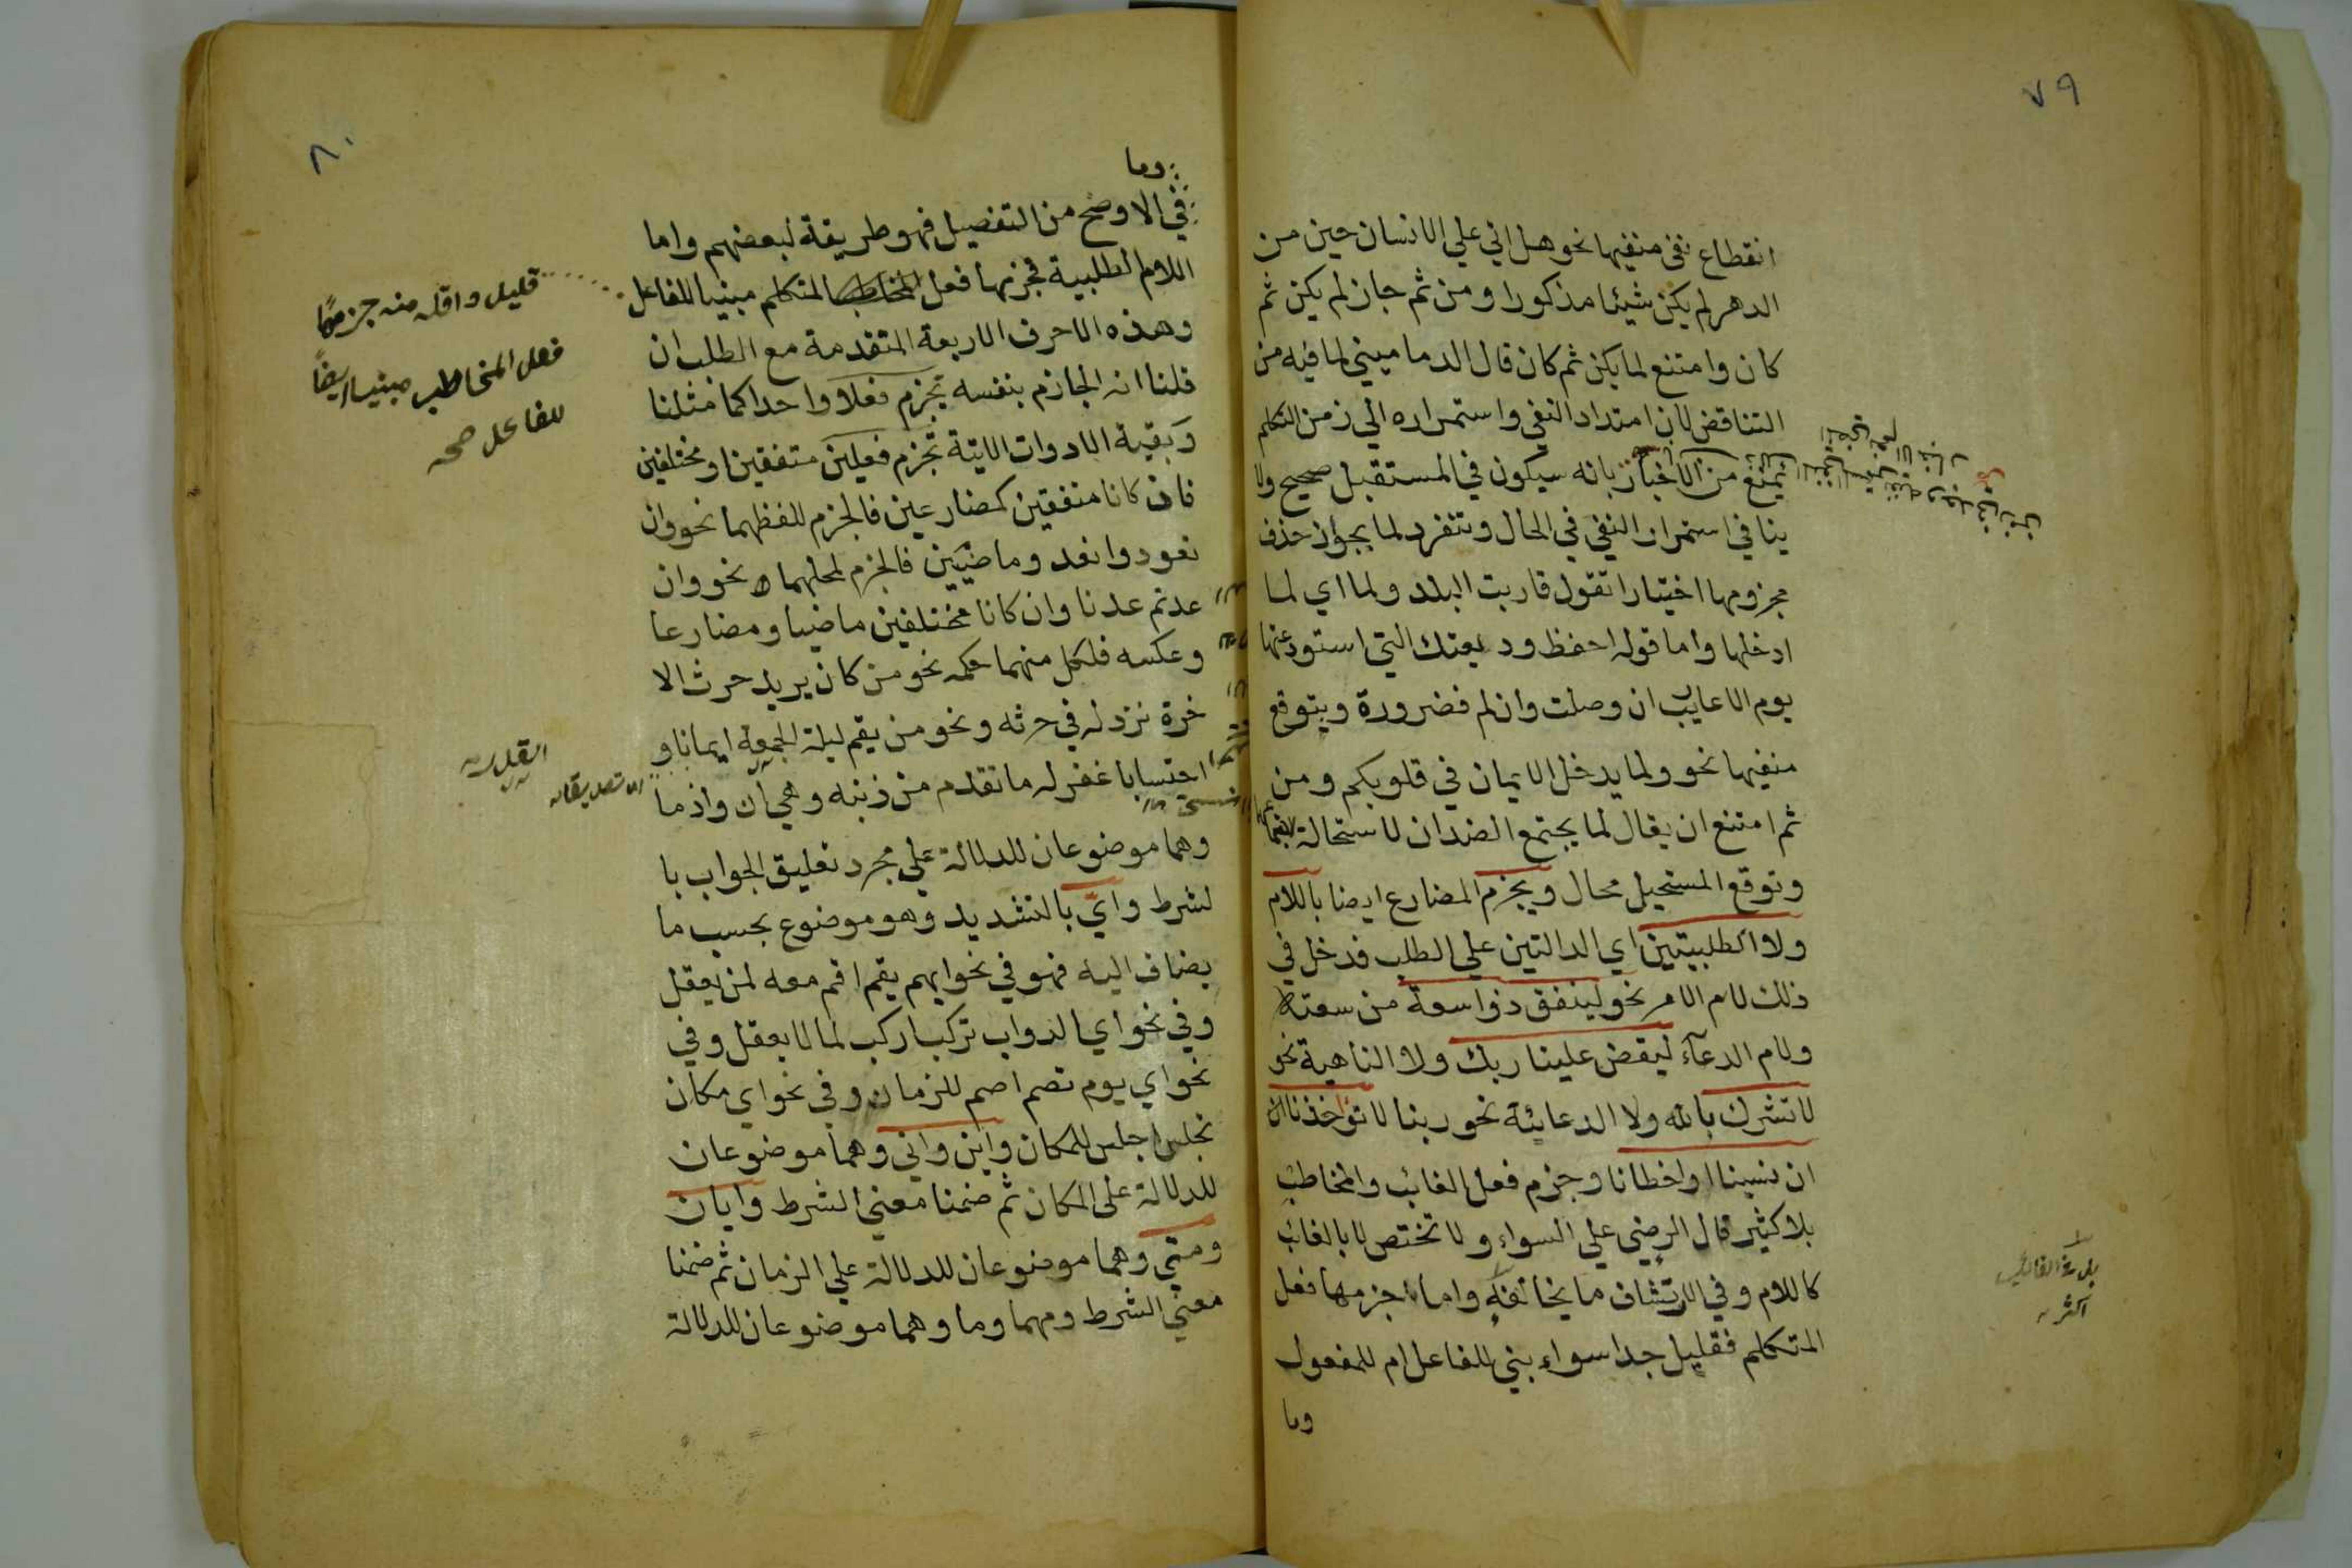 ٧٩
انقطاع نفى منفيها نحو هل اتي علي الانسان حين من
الدهر لم يكن شيئا مذكورا ومن ثم جاز لم يكن ثم
كان وامتنع لما يكن ثم كان قال الدماميني لما فيه من
التناقض لان امتداد النفي واستمراره الي زمن التكلم
يمنع من الاخبار بانه سيكون في المستقبل صحيح ولا
ينافي استمرار النفي في الحال وتنفرد لما بجواز حذف
مجزومها اختيارا تقول قاربت البلد ولما اي لما
ادخلها واما قوله احفظ وديعتك التي استودعتها
يوم الاعايب ان وصلت وان لم فضرورة ويتوقع
منفيها نحو ولما يدخل الايمان في قلوبكم ومن
ثم امتنع ان يقال لما يجتمع الضدان لاستحالة
وتوقع المستحيل محال ويجزم المضارع ايضا باللام
ولا الطلبيتين اي الدالتين علي الطلب فدخل في
ذلك لام الامر نحو لينفق ذوا سعة من سعته
ولام الدعآء ليقض علينا ربك ولا الناهية نحو
لا تشرك بالله ولا الدعائية نحو ربنا لا تؤاخذنا ان
ان نسينا او اخطانا وجزم فعل الغائب والمخاطب
بلا كثير قال الرضي علي السواء ولا تختص لا بالغائب
كاللام وفي الارتشاف ما يخالفه واما جزمها فعل
المتكلم فقليل جدا سواء بني للفاعل ام للمفعول
وما
اكثر
٨٠
وما
في الاوضح من التفصيل فهو طريقة لبعضهم واما
اللام الطلبية فجزمها فعل المتكلم مبنيا للفاعل
قليل واقل منه جزمها
فعل المخاطب مبنيا ايضا
للفاعل صح
وهذه الاحرف الاربعة المتقدمة مع الطلب ان
قلنا انه الجازم بنفسه تجزم فعلا واحدا كما مثلنا
وبقية الادوات الاتية تجزم فعلين متفقين او مختلفين
فان كانا متفقين كمضارعين فالجزم للفظهما نحو وان
تعودوا نعد وماضيين فالجزم لمحلهما نحو وان
عدتم عدنا وان كانا مختلفين ماضيا ومضارعا
وعكسه فلكل منهما حكمه نحو من كان يريد حرث الا
خرة نزد له في حرثه ونحو من يقم ليلة الجمعة ايمانا و
القدر
احتسابا غفر له ما تقدم من ذنبه وهي ان واذ ما
وهما موضوعان للدلالة علي مجرد تعليق الجواب با
لشرط واي بالتشديد وهو موضوع بحسب ما
يضاف اليه فهو في نحو ايهم يقم اقم معه لمن يعقل
وفي نحو اي الدواب تركب اركب لما لا يعقل وفي
نحو اي يوم تصم اصم للزمان وفي نحو اي مكان
تجلس اجلس للمكان واين واني وهما موضوعان
للدلالة علي المكان ثم ضمنا معني الشرط وايان
ومتي وهما موضوعان للدلالة علي الزمان ثم ضمنا
معني الشرط ومهما وما وهما موضوعان للدلالة